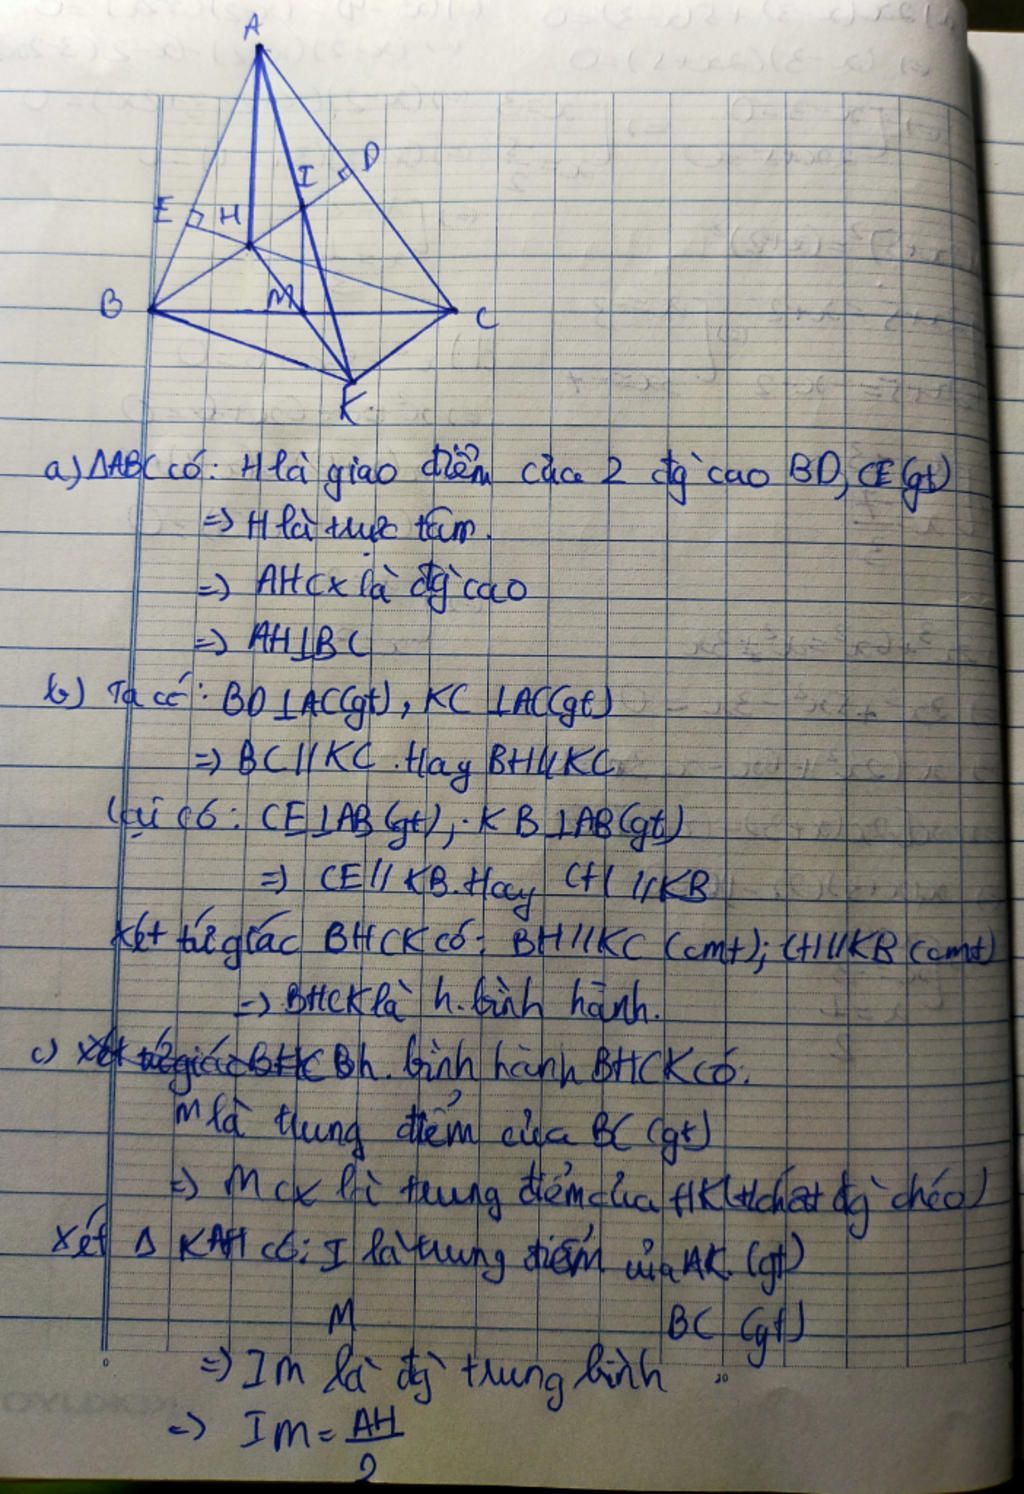 A
D
I
E
H
B
M
C
K
a) ΔABC có: H là giao điểm của 2 đg` cao BD, CE (gt)
=> H là trực tâm.
=> AH cx là đg` cao
=> AH⊥BC
b) Ta có: BD⊥AC(gt), KC⊥AC(gt)
=> BC//KC. Hay BH//KC
Lại có: CE⊥AB(gt), KB⊥AB(gt)
=> CE//KB. Hay CH//KB
Xét tứ giác BHCK có: BH//KC (cmt); CH//KB (cmt)
=> BHCK là h. bình hành.
c) Xét tứ giác BHC B h. bình hành BHCK có:
M là trung điểm của BC (gt)
=> M cx là trung điểm của HK (t/chất đg` chéo)
Xét Δ KAH có: I là trung điểm của AK (gt)
M BC (gt)
=> IM là đg` trung bình
=> IM = AH/2